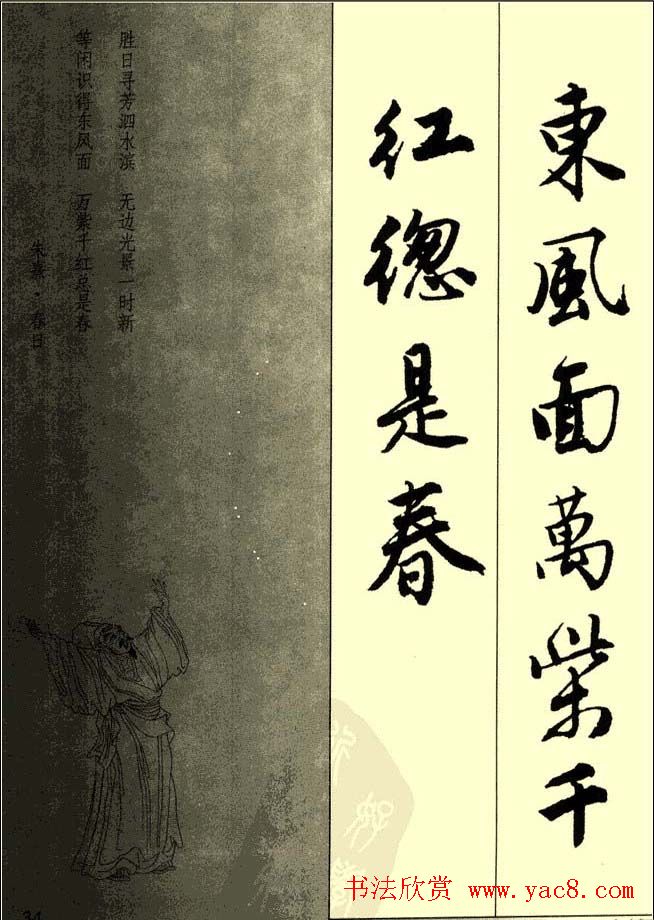 東風面萬紫千
紅緫是春
胜日寻芳泗水滨 无边光景一时新
等闲识得东风面 万紫千红总是春
朱熹·春日
书法欣赏 www.yac8.com